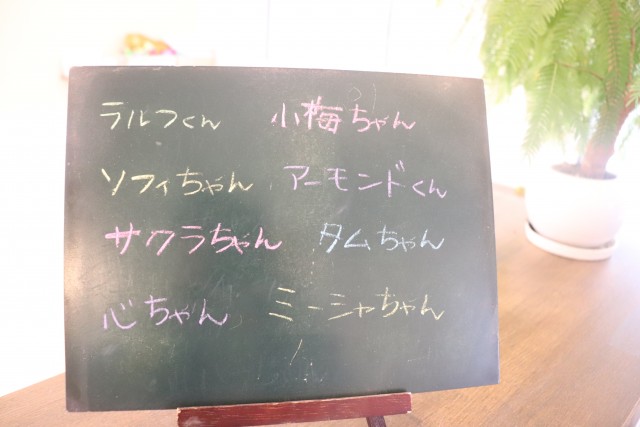 ラルフくん 小梅ちゃん
ソフィちゃん アーモンドくん
サクラちゃん タムちゃん
心ちゃん ミーシャちゃん